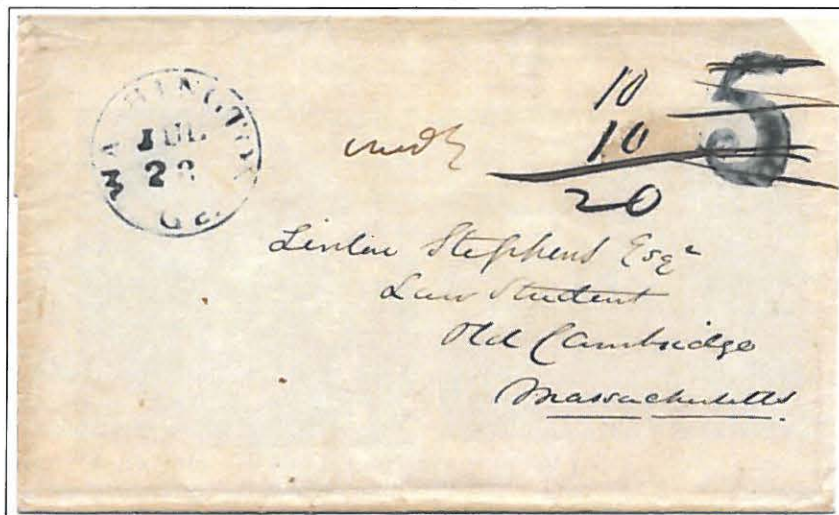 WASHINGTON Ga.
JUL
22
5
10
10
20
Linton Stephens Esqr
Law Student
Old Cambridge
Massachusetts.